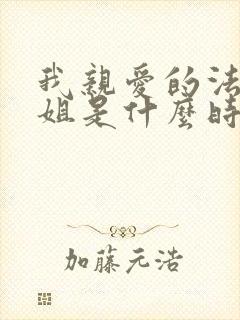 我親愛的法
姐是什麼時
加藤元浩